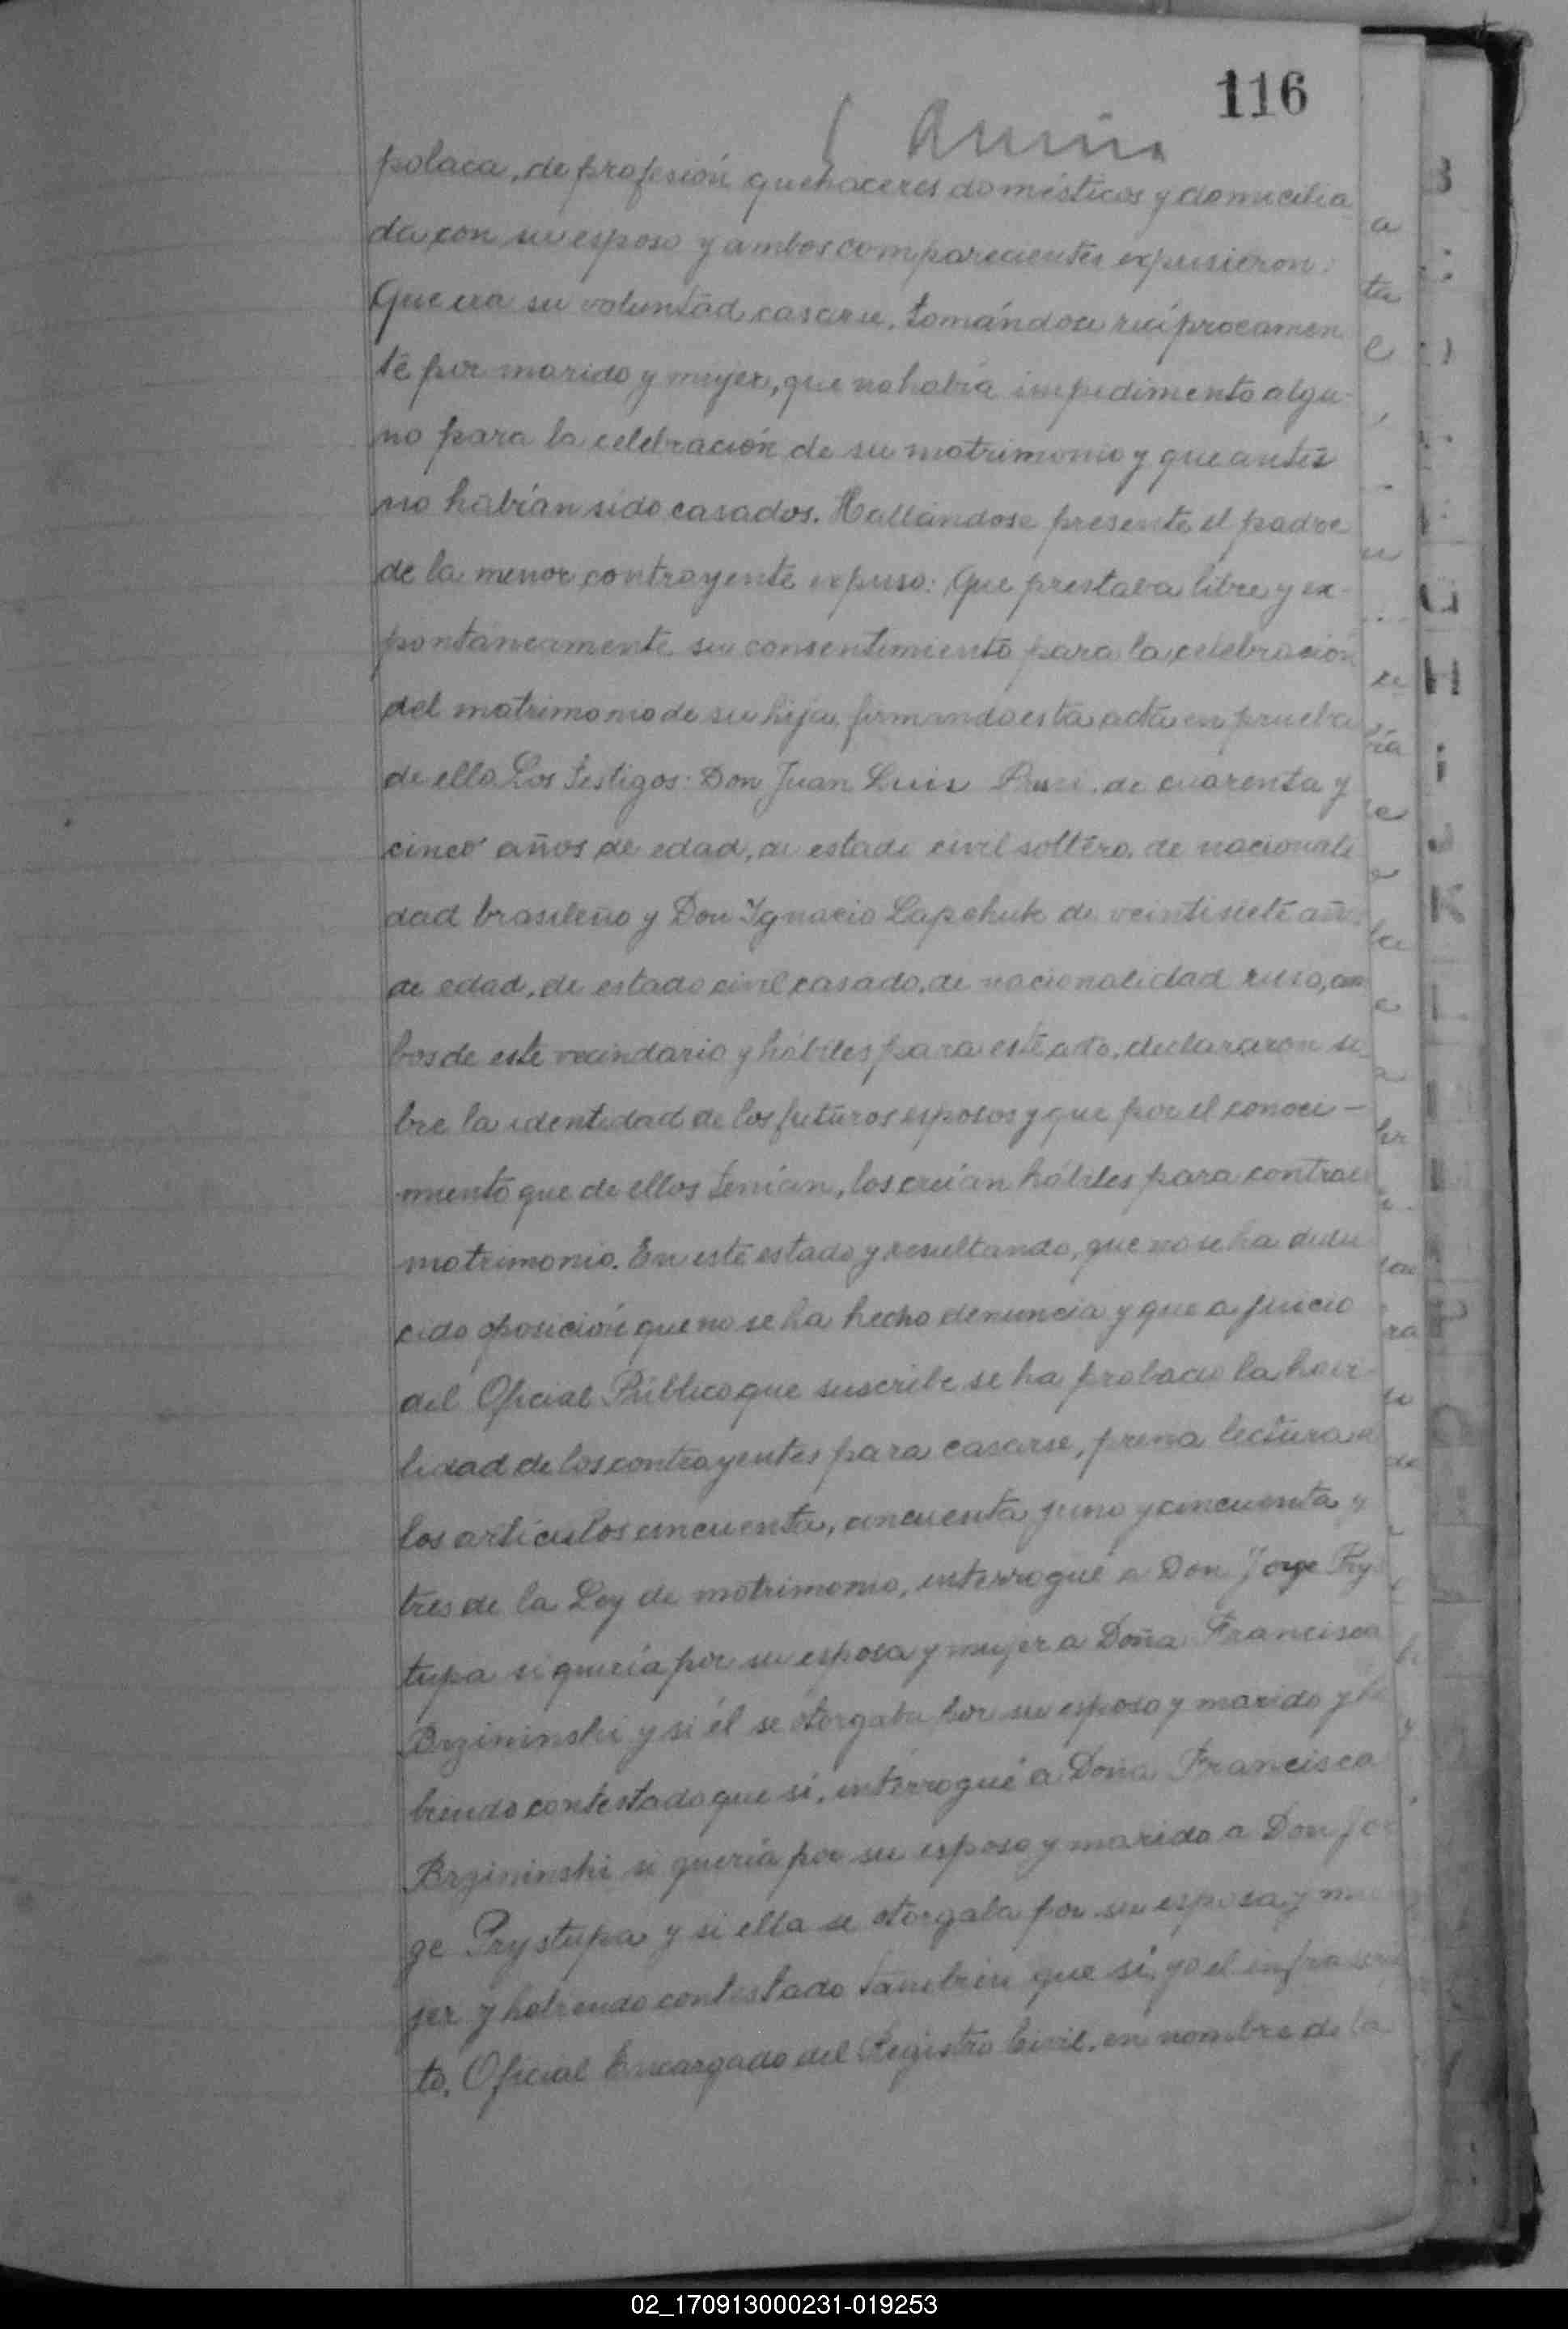 116
polaca, de profesión quehaceres domésticos y domicilia
da con su esposo y ambos comparecientes expusieron:
Que era su voluntad casarse, tomándose recíprocamen
te por marido y mujer, que no había impedimento algu-
no para la celebración de su matrimonio y que antes
no habían sido casados. Hallándose presente el padre
de la menor contrayente expuso: Que prestaba libre y ex-
pontáneamente su consentimiento para la celebración
del matrimonio de su hija, firmando esta acta en prueba
de ello. Los testigos: Don Juan Luis de cuarenta y
cinco años de edad, de estado civil soltero, de nacionali
dad brasileño y Don Ygnacio Lapchuk de veintisiete años
de edad, de estado civil casado, de nacionalidad ruso, am
bos de este vecindario y hábiles para este acto, declararon so
bre la identidad de los futuros esposos y que por el conoci-
miento que de ellos tenían, los creían hábiles para contraer
matrimonio. En este estado y resultando, que no se ha dedu
cido oposición que no se ha hecho denuncia y que a juicio
del Oficial Público que suscribe se ha probado la habi-
lidad de los contrayentes para casarse, previa lectura de
los artículos cincuenta, cincuenta y uno y cincuenta y
tres de la Ley de matrimonio, interrogué a Don Jorge Pry
tupa si quería por su esposa y mujer a Doña Francisca
Brzininski y si él se otorgaba por su esposo y marido y ha
biendo contestado que sí, interrogué a Doña Francisca
Brzininski si quería por su esposo y marido a Don Jor
ge Prystupa y si ella se otorgaba por su esposa y mu
jer y habiendo contestado también que sí, yo el infrascri
to, Oficial Encargado del Registro Civil, en nombre de la
02_170913000231-019253